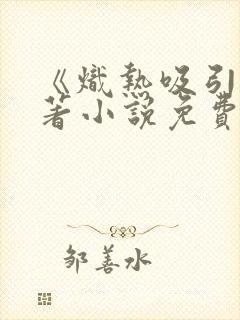 《熾熱吸引
著小說免費
邹善水